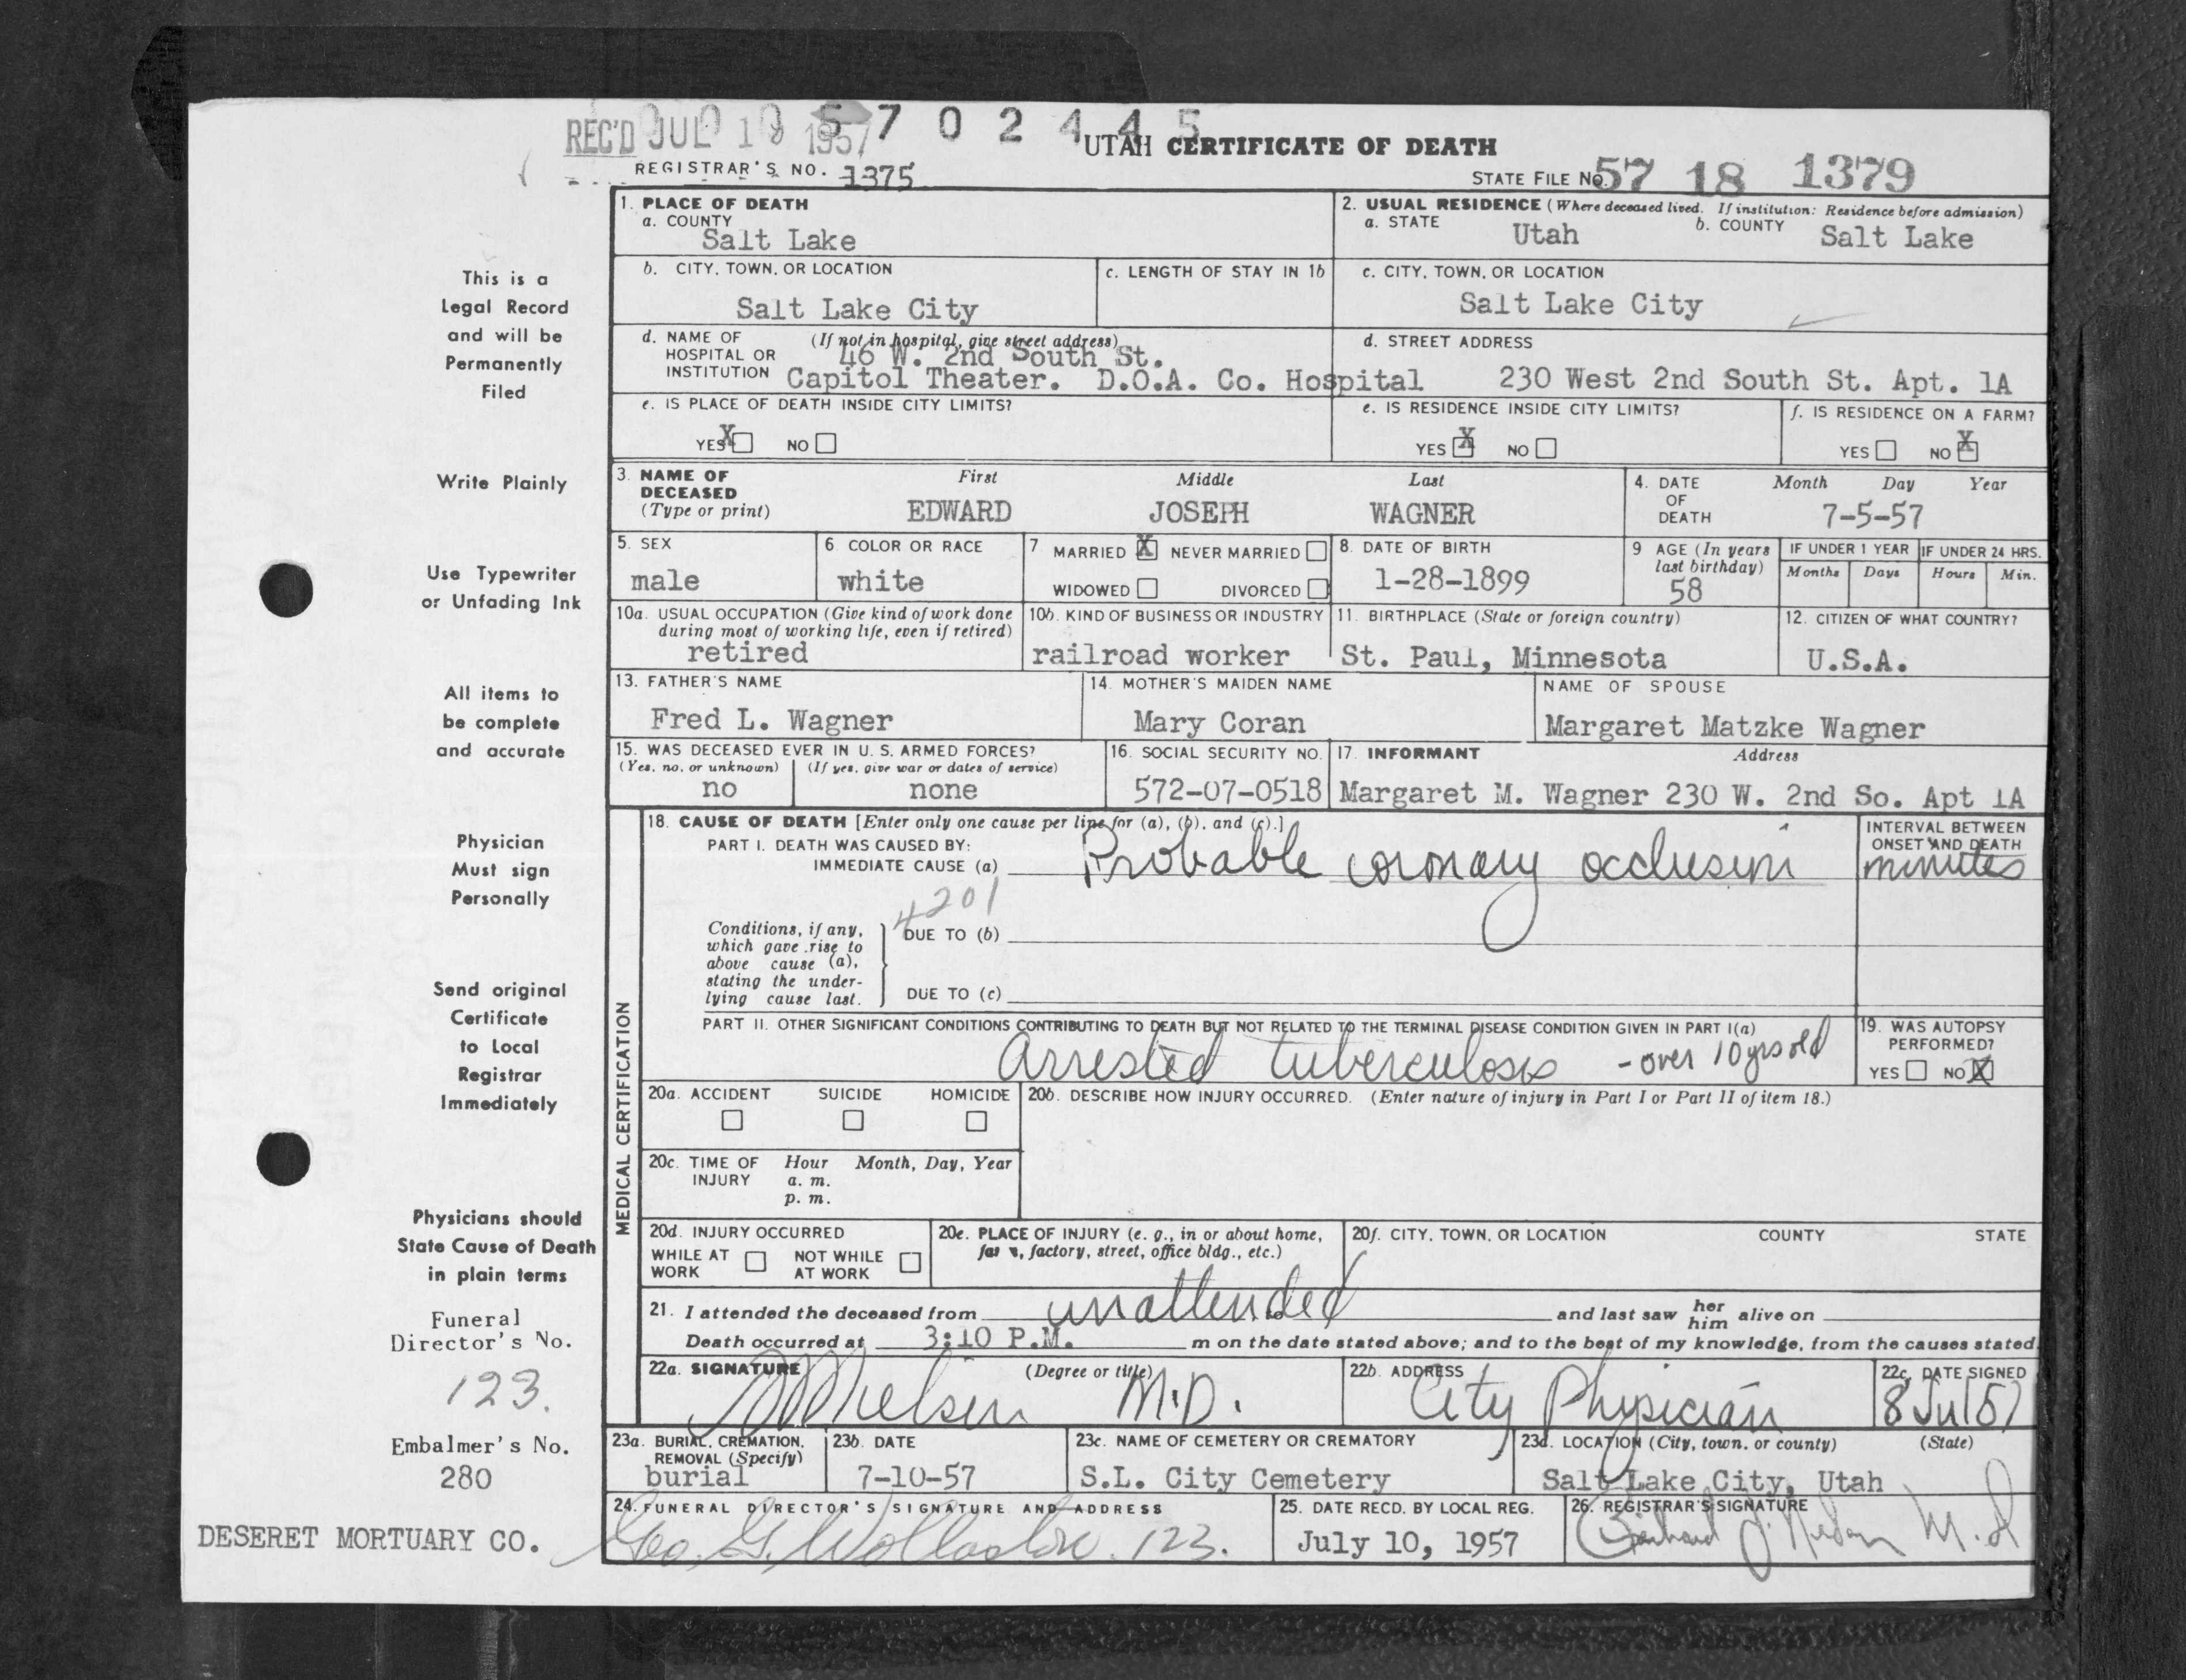 0 0 0 5 7 0 2 4 4 5
REC'D JUL 10 1957
UTAH CERTIFICATE OF DEATH
REGISTRAR'S NO. 1375
STATE FILE NO. 57 18 1379
1. PLACE OF DEATH
a. COUNTY
Salt Lake
2. USUAL RESIDENCE (Where deceased lived. If institution: Residence before admission)
a. STATE Utah b. COUNTY Salt Lake
b. CITY, TOWN, OR LOCATION
Salt Lake City
c. LENGTH OF STAY IN 1b
c. CITY, TOWN, OR LOCATION
Salt Lake City
d. NAME OF HOSPITAL OR INSTITUTION (If not in hospital, give street address)
46 W. 2nd South St.
Capitol Theater. D.O.A. Co. Hospital
d. STREET ADDRESS
230 West 2nd South St. Apt. 1A
e. IS PLACE OF DEATH INSIDE CITY LIMITS?
YES X NO
e. IS RESIDENCE INSIDE CITY LIMITS?
YES X NO
f. IS RESIDENCE ON A FARM?
YES NO X
3. NAME OF DECEASED (Type or print)
First Middle Last
EDWARD JOSEPH WAGNER
4. DATE OF DEATH Month Day Year
7-5-57
5. SEX
male
6 COLOR OR RACE
white
7 MARRIED X NEVER MARRIED
WIDOWED DIVORCED
8. DATE OF BIRTH
1-28-1899
9 AGE (In years last birthday)
58
IF UNDER 1 YEAR
Months Days
IF UNDER 24 HRS.
Hours Min.
10a. USUAL OCCUPATION (Give kind of work done during most of working life, even if retired)
retired
10b. KIND OF BUSINESS OR INDUSTRY
railroad worker
11. BIRTHPLACE (State or foreign country)
St. Paul, Minnesota
12. CITIZEN OF WHAT COUNTRY?
U.S.A.
13. FATHER'S NAME
Fred L. Wagner
14. MOTHER'S MAIDEN NAME
Mary Coran
NAME OF SPOUSE
Margaret Matzke Wagner
15. WAS DECEASED EVER IN U. S. ARMED FORCES?
(Yes, no, or unknown) (If yes, give war or dates of service)
no none
16. SOCIAL SECURITY NO.
572-07-0518
17. INFORMANT Address
Margaret M. Wagner 230 W. 2nd So. Apt 1A
MEDICAL CERTIFICATION
18. CAUSE OF DEATH [Enter only one cause per line for (a), (b), and (c).]
PART I. DEATH WAS CAUSED BY:
IMMEDIATE CAUSE (a) Probable coronary occlusion
INTERVAL BETWEEN ONSET AND DEATH
minutes
4201
Conditions, if any,
which gave rise to
above cause (a),
stating the under-
lying cause last.
DUE TO (b)
DUE TO (c)
PART II. OTHER SIGNIFICANT CONDITIONS CONTRIBUTING TO DEATH BUT NOT RELATED TO THE TERMINAL DISEASE CONDITION GIVEN IN PART I(a)
Arrested tuberculosis - over 10 yrs old
19. WAS AUTOPSY PERFORMED?
YES NO X
20a. ACCIDENT SUICIDE HOMICIDE
20b. DESCRIBE HOW INJURY OCCURRED. (Enter nature of injury in Part I or Part II of item 18.)
20c. TIME OF INJURY Hour Month, Day, Year
a. m.
p. m.
20d. INJURY OCCURRED
WHILE AT WORK NOT WHILE AT WORK
20e. PLACE OF INJURY (e. g., in or about home,
farm, factory, street, office bldg., etc.)
20f. CITY, TOWN, OR LOCATION COUNTY STATE
21. I attended the deceased from unattended to and last saw her him alive on
Death occurred at 3:10 P.M. m on the date stated above; and to the best of my knowledge, from the causes stated.
22a. SIGNATURE (Degree or title)
Nielsen M.D.
22b. ADDRESS
City Physician
22c. DATE SIGNED
8 Jul 57
23a. BURIAL, CREMATION, REMOVAL (Specify)
burial
23b. DATE
7-10-57
23c. NAME OF CEMETERY OR CREMATORY
S.L. City Cemetery
23d. LOCATION (City, town, or county) (State)
Salt Lake City, Utah
24. FUNERAL DIRECTOR'S SIGNATURE AND ADDRESS
Geo. G. Wollaston 123.
25. DATE RECD. BY LOCAL REG.
July 10, 1957
26. REGISTRAR'S SIGNATURE
M.D
This is a
Legal Record
and will be
Permanently
Filed
Write Plainly
Use Typewriter
or Unfading Ink
All items to
be complete
and accurate
Physician
Must sign
Personally
Send original
Certificate
to Local
Registrar
Immediately
Physicians should
State Cause of Death
in plain terms
Funeral
Director's No.
123.
Embalmer's No.
280
DESERET MORTUARY CO.